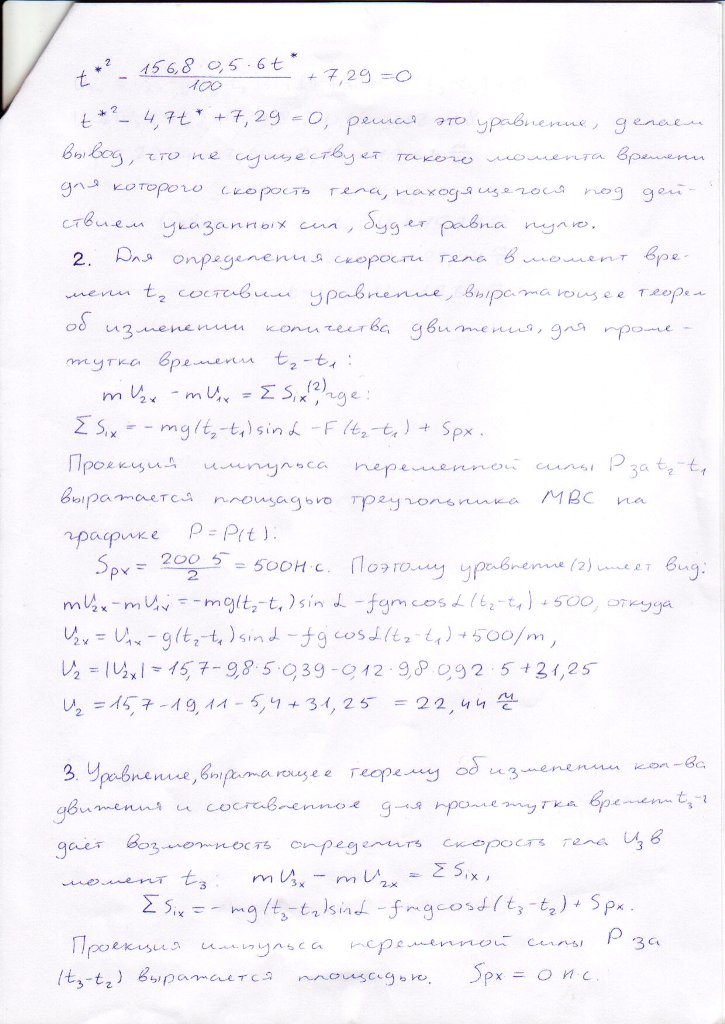 t*² - 156,8·0,5·6t*/100 + 7,29 = 0
t*² - 4,7t* + 7,29 = 0, решая это уравнение, делаем
вывод, что не существует такого момента времени
для которого скорость тела, находящегося под дей-
ствием указанных сил, будет равна нулю.
2. Для определения скорости тела в момент вре-
мени t₂ составим уравнение, выражающее теорем
об изменении количества движения, для проме-
жутка времени t₂-t₁:
mU₂ₓ - mU₁ₓ = ΣSᵢₓ⁽²⁾, где:
ΣSᵢₓ = -mg(t₂-t₁)sinα - F(t₂-t₁) + Sрх.
Проекция импульса переменной силы P за t₂-t₁
выражается площадью треугольника MBC на
графике P = P(t):
Sрх = 200·5/2 = 500Н·с. Поэтому уравнение (2) имеет вид:
mU₂ₓ - mU₁ₓ = -mg(t₂-t₁)sinα - fgmcosα(t₂-t₁) + 500, откуда
U₂ₓ = U₁ₓ - g(t₂-t₁)sinα - fgcosα(t₂-t₁) + 500/m,
U₂ = |U₂ₓ| = 15,7 - 9,8·5·0,39 - 0,12·9,8·0,92·5 + 31,25
U₂ = 15,7 - 19,11 - 5,4 + 31,25 = 22,44 м/с
3. Уравнение, выражающее теорему об изменении кол-ва
движения и составленное для промежутка времени t₃-
даёт возможность определить скорость тела U₃ в
момент t₃: mU₃ₓ - mU₂ₓ = ΣSᵢₓ,
ΣSᵢₓ = -mg(t₃-t₂)sinα - fmgcosα(t₃-t₂) + Sрх.
Проекция импульса переменной силы P за
(t₃-t₂) выражается площадью. Sрх = 0 Н с.